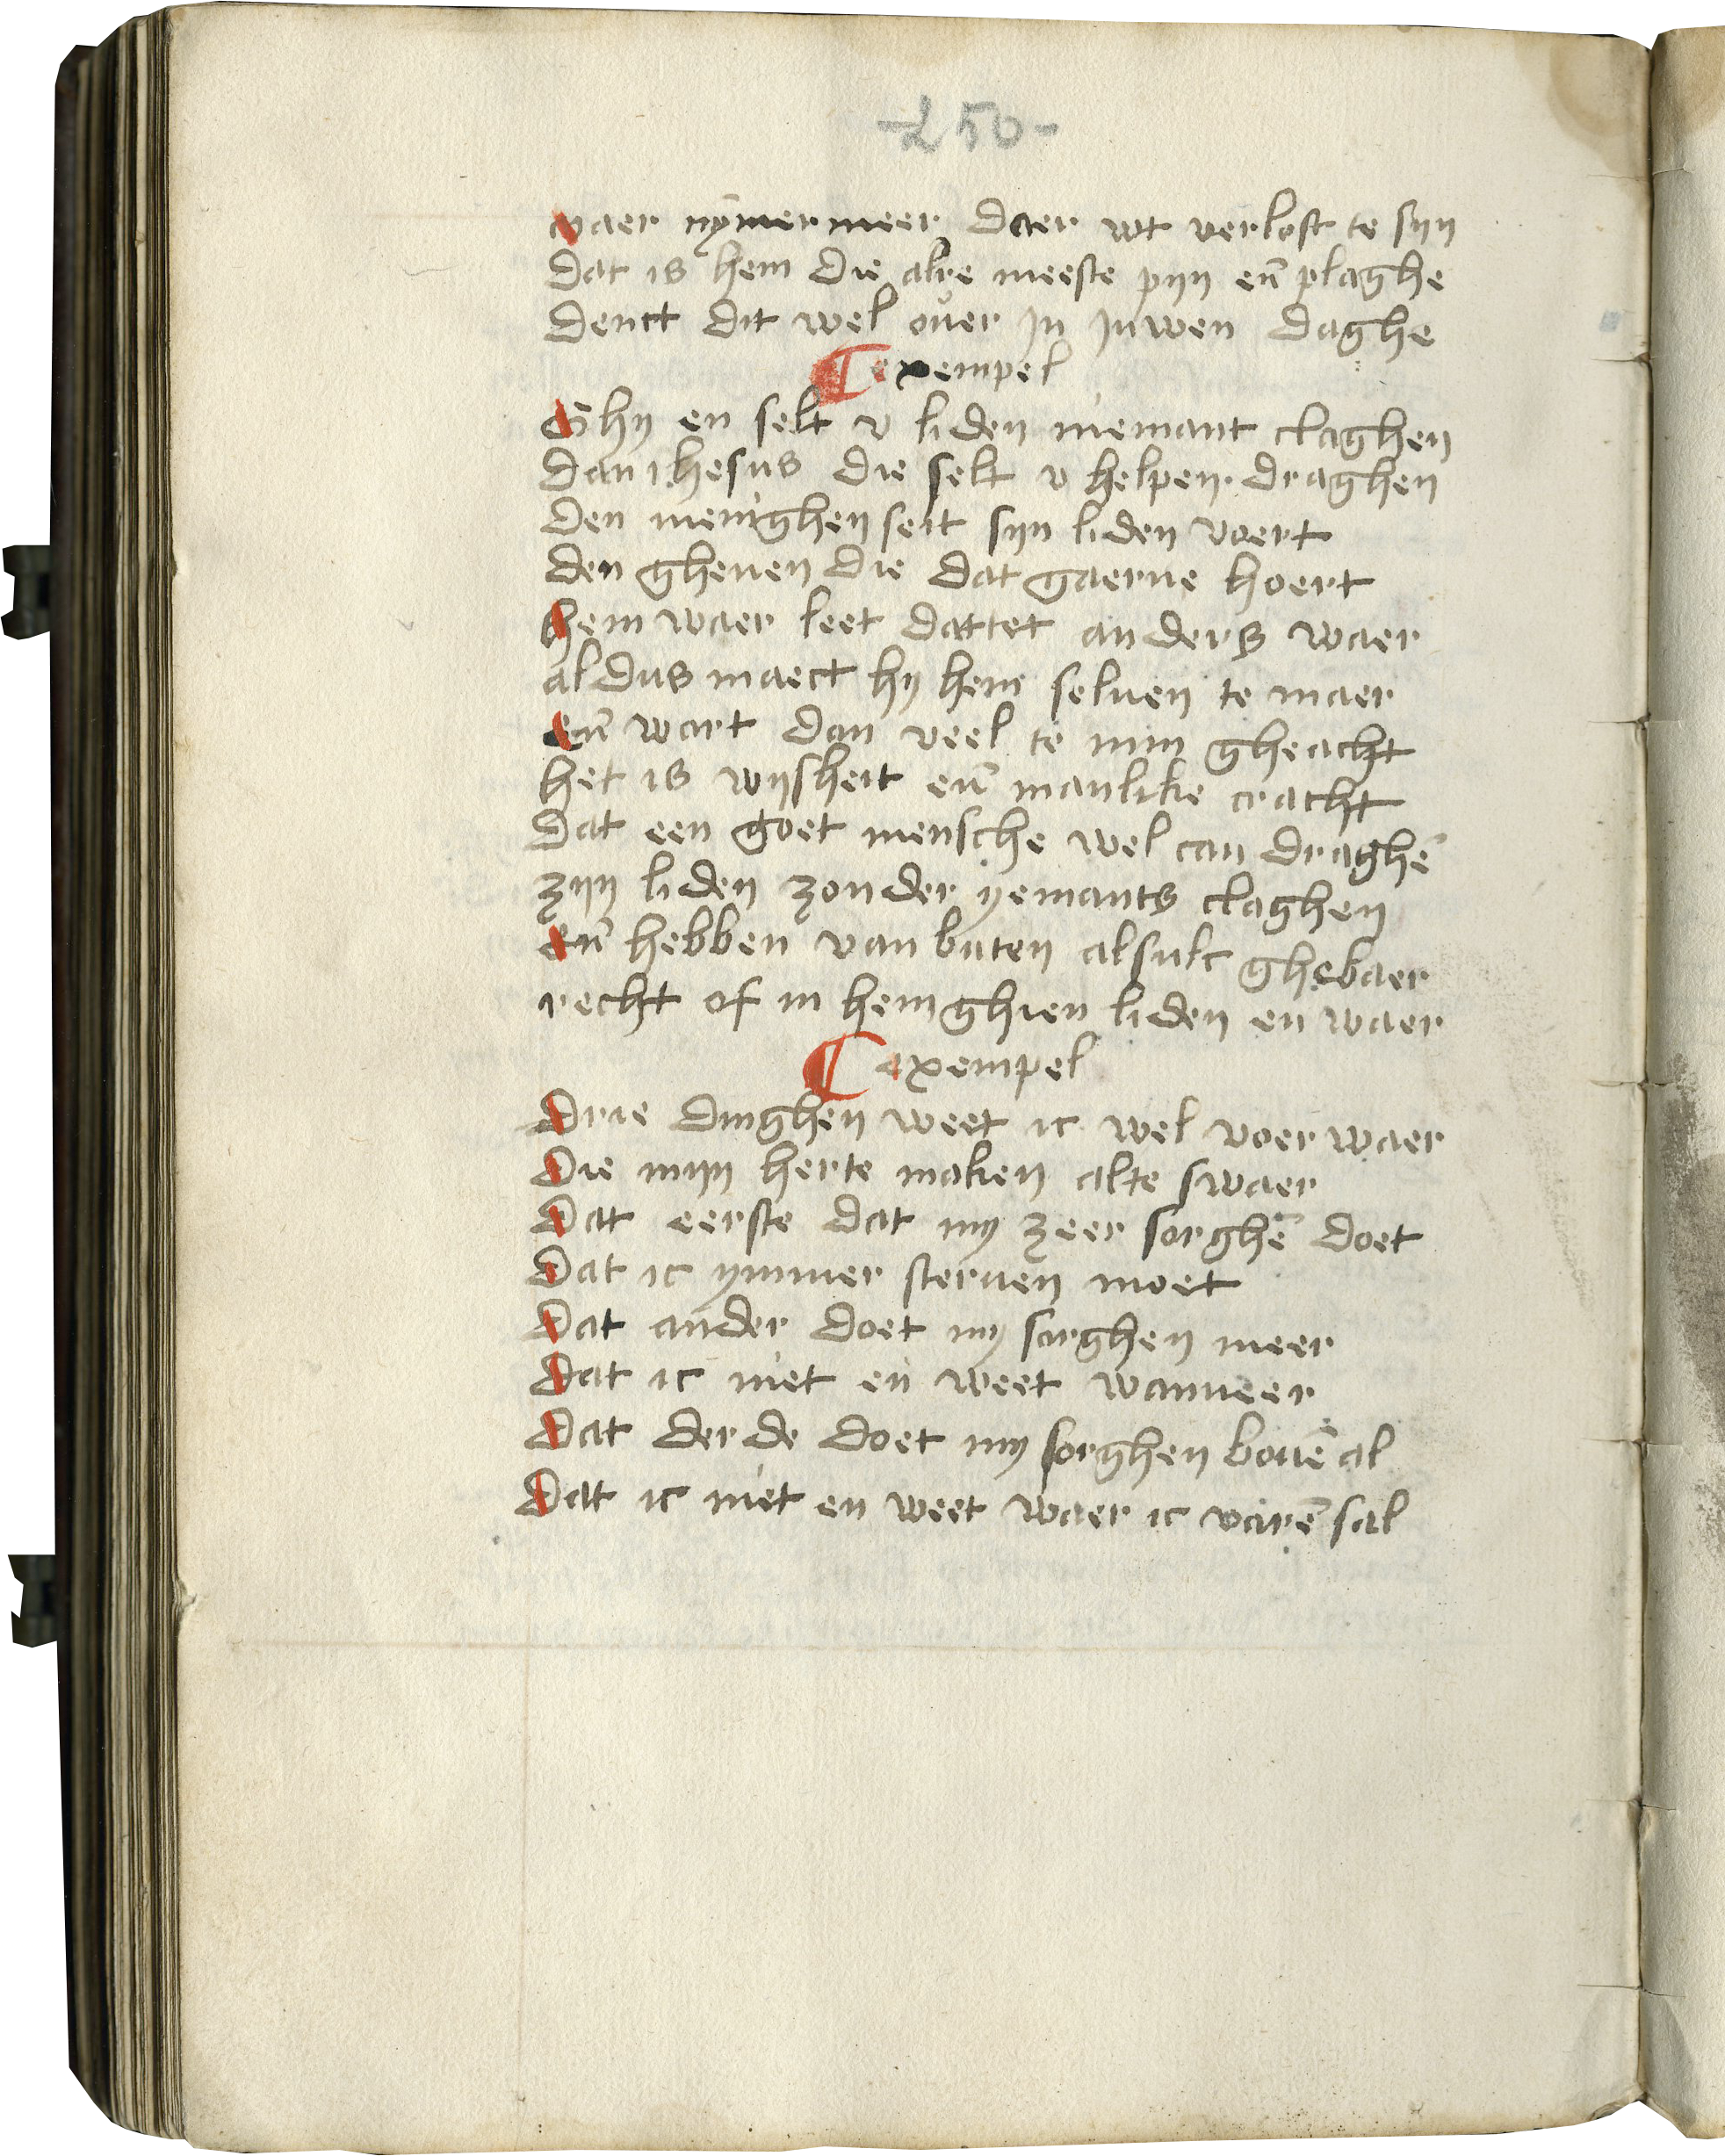 -250-
waer nȳmermeer daer wt verlost te syn
dat is hem die alre meeste pyn en̄ plaghe
denct dit wel ouer in iuwen daghe
¶ exempel
Ghy en selt v liden niemant claghen
dan ihesus die selt v helpen draghen
den menighen seit syn liden voert
den ghenen die dat gaerne hoert
hem waer leet dattet anders waer
aldus maect hy hem seluen te maer
en̄ wart dan veel te min gheacht
het is wysheit en̄ manlike cracht
dat een goet mensche wel can draghē
zyn liden zonder yemants claghen
en̄ hebben van buten alsulc ghebaer
recht of in hem ghien liden en waer
¶ exempel
Drie dinghen weet ic wel voerwaer
Die myn herte maken alte swaer
Dat eerste dat my zeer sorghē doet
Dat ic ymmer steruen moet
Dat ander doet my sorghen meer
Dat ic niet en weet wanneer
Dat derde doet my sorghen bouē al
Dat ic niet en weet waer ic varē sal